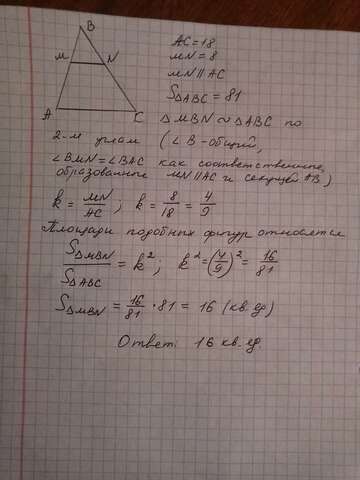 B
M
N
A
C
AC = 18
MN = 8
MN || AC
S△ABC = 81
△MBN ∾ △ABC по
2-м углам (∠B - общий,
∠BMN = ∠BAC как соответственные,
образованные MN || AC и секущей AB)
k = MN/AC ; k = 8/18 = 4/9
Площади подобных фигур относятся
S△MBN/S△ABC = k² ; k² = (4/9)² = 16/81
S△MBN = 16/81 · 81 = 16 (кв. ед)
Ответ: 16 кв. ед.